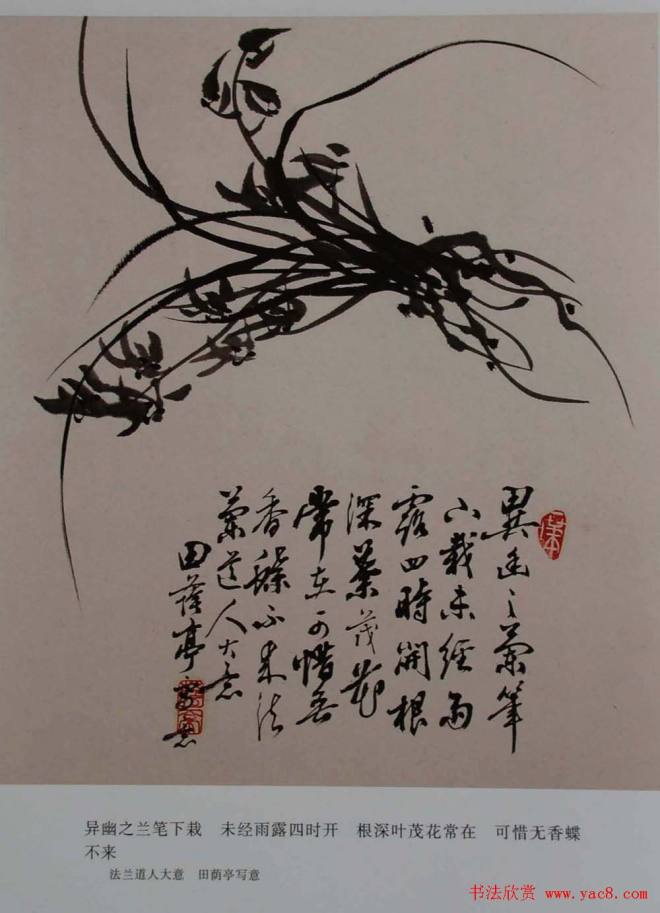 異幽之蘭筆
下栽未經雨
露四時開根
深葉茂花
常在可惜無
香蝶不来法
蘭道人大意
田蔭亭寫意
异幽之兰笔下栽 未经雨露四时开 根深叶茂花常在 可惜无香蝶
不来
法兰道人大意 田荫亭写意
书法欣赏 @ www.yac8.com